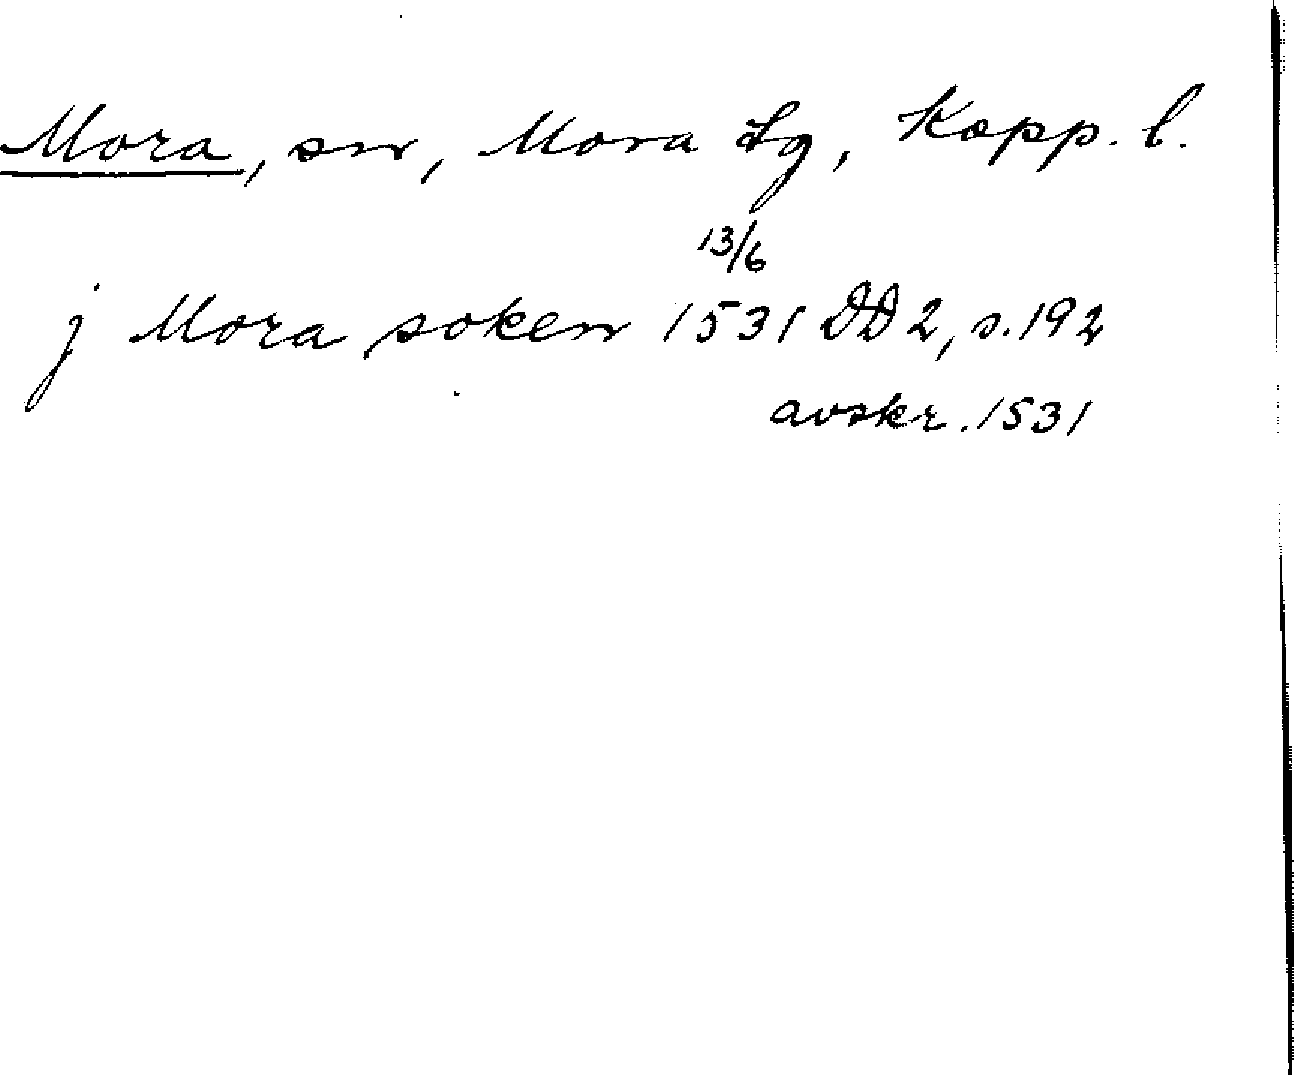 Mora, sn, Mora tg, Kopp. l.
13/6
j Mora soken 1531 DD 2, s. 192
avskr. 1531